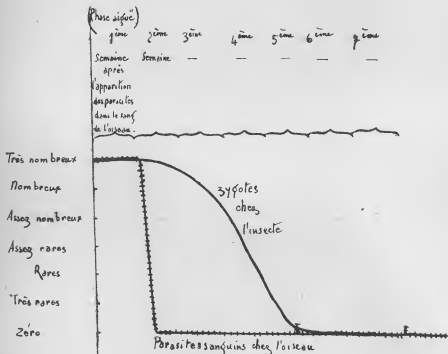 (Phase aiguë)
1ème 2ème 3ème 4ème 5ème 6ème 7ème
Semaine Semaine — — — — —
après
l'apparition
des parasites
dans le sang
de l'oiseau.
Très nombreux
Nombreux
Assez nombreux
Assez rares
Rares
Très rares
Zéro
zygotes
chez
l'insecte
Parasites sanguins chez l'oiseau